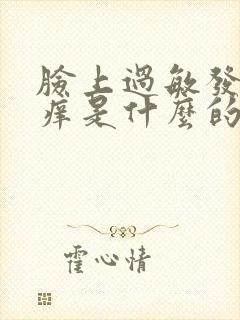 臉上過敏發
痒是什麼的
霍心情